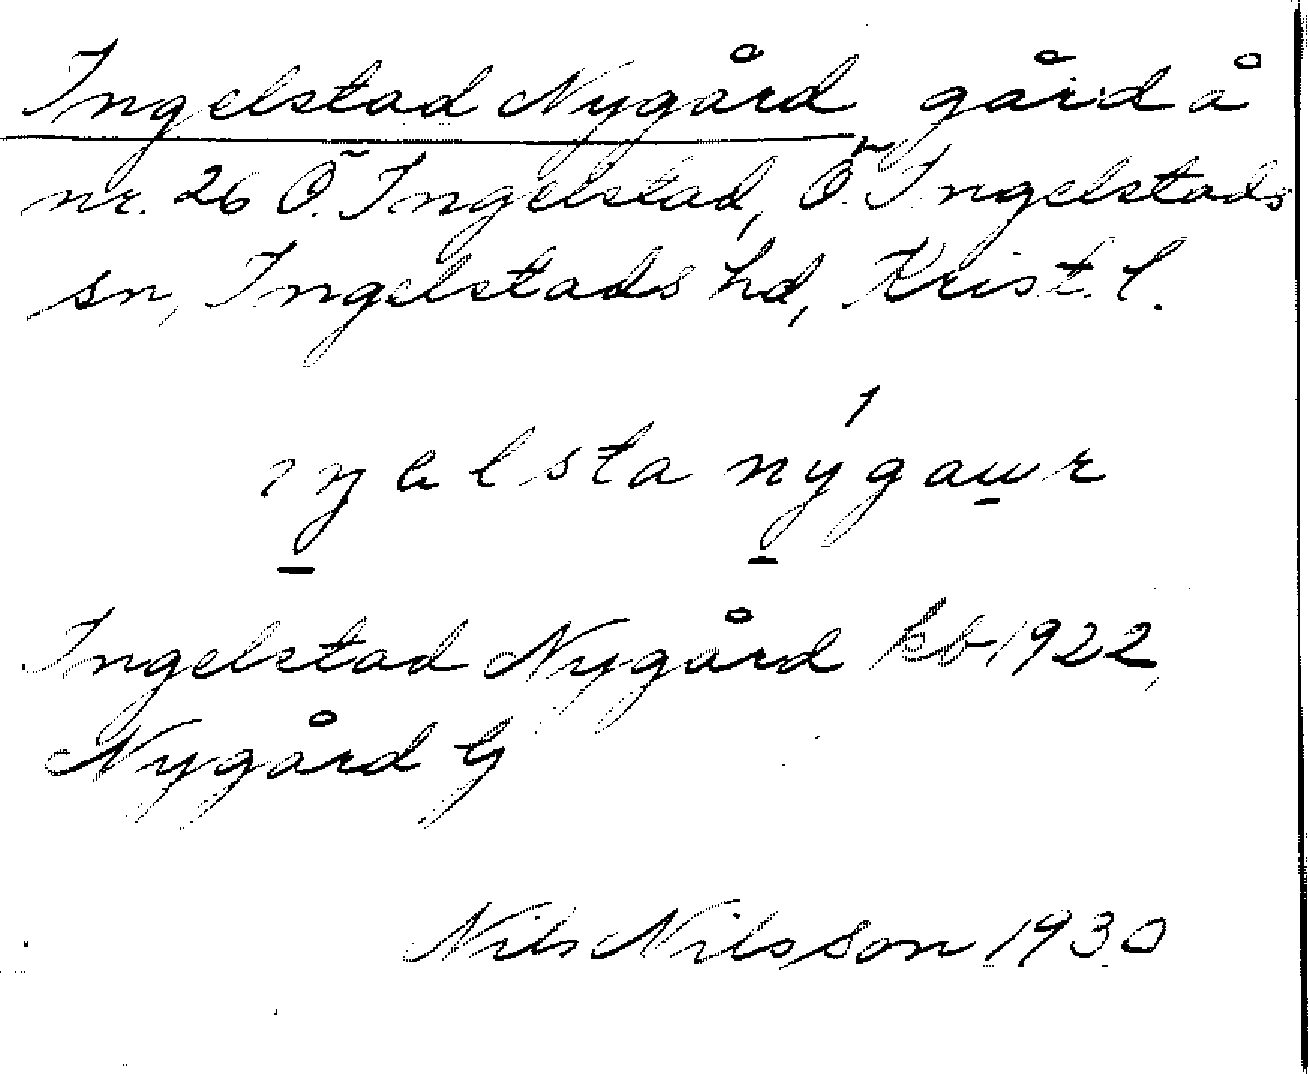 Ingelstad Nygård gård å
nr. 26 Ö. Ingelstad, Ö. Ingelstads
sn, Ingelstads hd, Krist. l.
ıŋalsta nýgaɯr
Ingelstad Nygård kb 1922,
Nygård G
Nils Nilsson 1930